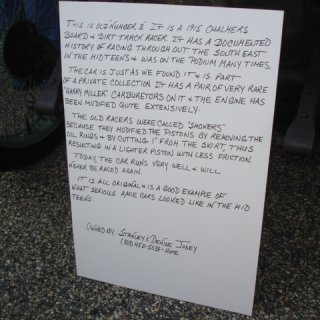 THIS IS OLD NUMBER 3. IT IS A 1915 CHALMERS
BOARD & DIRT TRACK RACER. IT HAS A DOCUMENTED
HISTORY OF RACING THROUGH OUT THE SOUTH EAST
IN THE MIDTEENS & WAS ON THE PODIUM MANY TIMES.
THE CAR IS JUST AS WE FOUND IT & IS PART
OF A PRIVATE COLLECTION. IT HAS A PAIR OF VERY RARE
"HARRY MILLER" CARBURETORS ON IT & THE ENGINE HAS
BEEN MODIFIED QUITE EXTENSIVELY.
THE OLD RACERS WERE CALLED "SMOKERS"
BECAUSE THEY MODIFIED THE PISTONS BY REMOVING THE
OIL RINGS & BY CUTTING 1" FROM THE SKIRT, THUS
RESULTING IN A LIGHTER PISTON WITH LESS FRICTION.
TODAY THE CAR RUNS VERY WELL & WILL
NEVER BE RACED AGAIN.
IT IS ALL ORIGINAL & IS A GOOD EXAMPLE OF
WHAT SERIOUS RACE CARS LOOKED LIKE IN THE MID
TEENS.
OWNED BY: STANLEY & DENISE